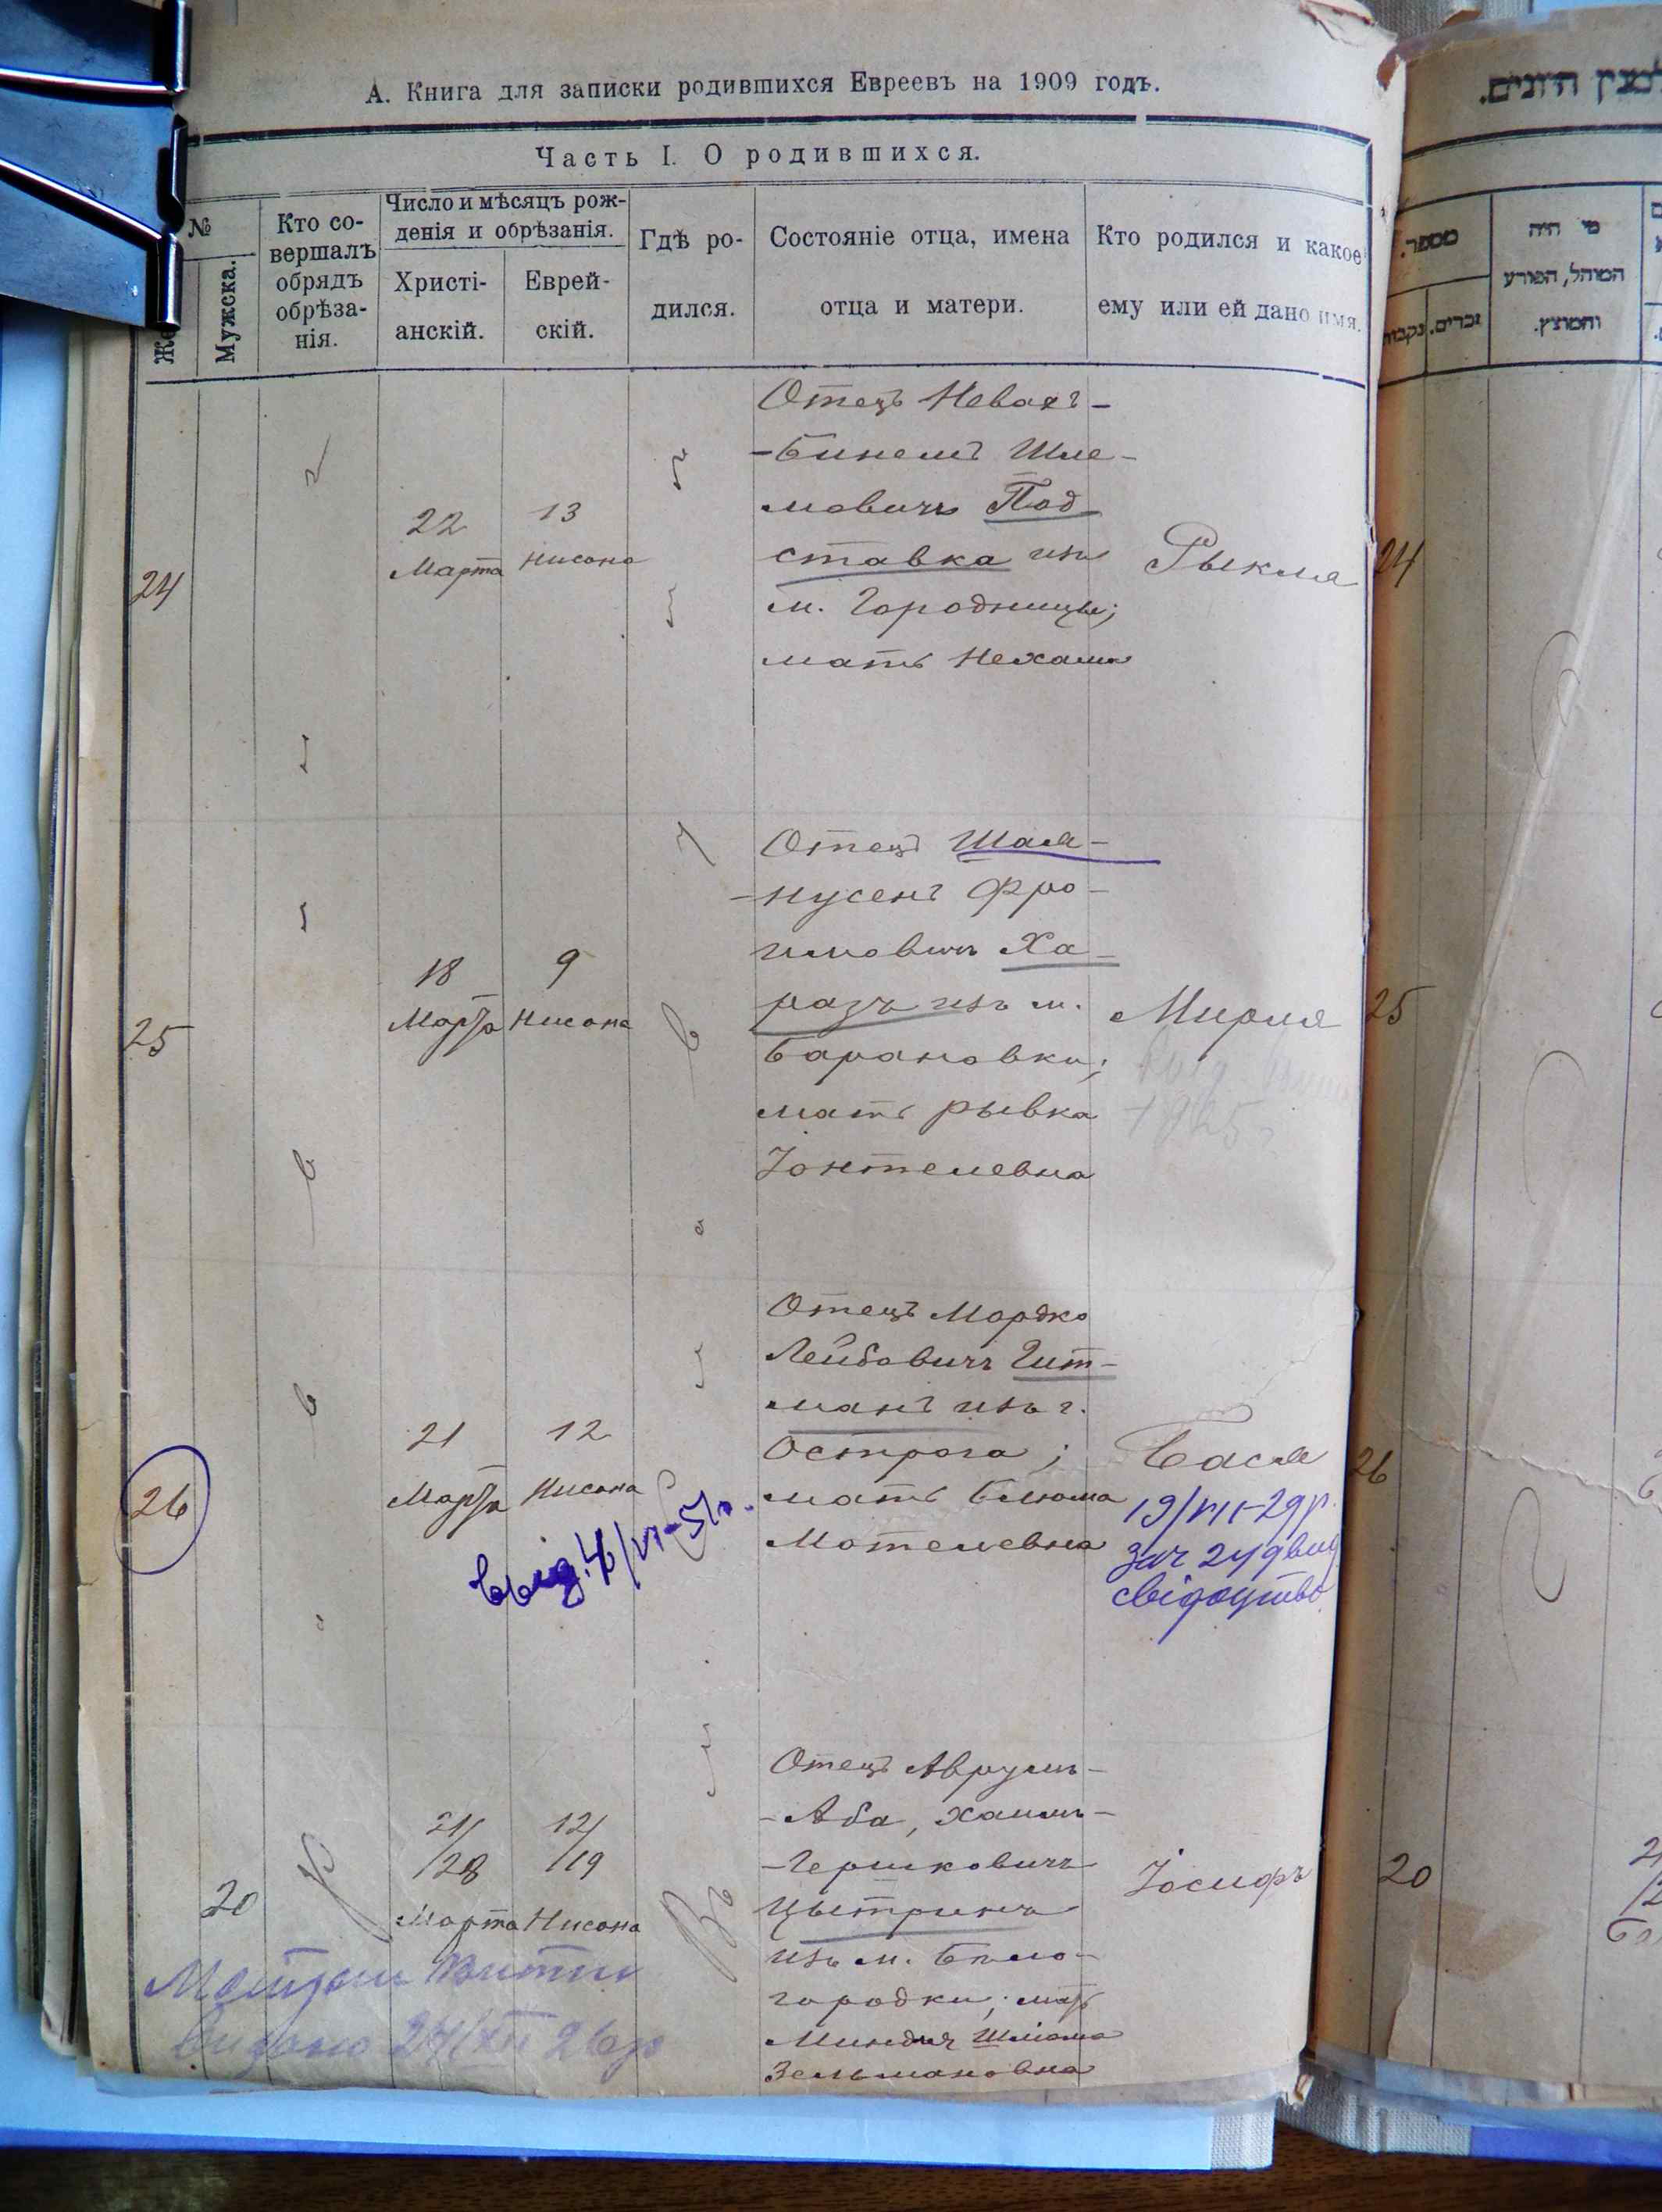 А. Книга для записки родившихся Евреевъ на 1909 годъ.
Часть I. О родившихся.
№
Же
Мужска.
Кто со-
вершалъ
обрядъ
обрѣза-
нія.
Число и мѣсяцъ рож-
денія и обрѣзанія.
Христі-
анскій.
Еврей-
скій.
Гдѣ ро-
дился.
Состояніе отца, имена
отца и матери.
Кто родился и какое
ему или ей дано имя.
24
22
Марта
13
Нисона
Отецъ Невахъ-
-Бинемъ Шле-
мовичъ Под-
ставка изъ
м. Городницы;
мать Нехама
Рыкля
25
18
Марта
9
Нисона
Отецъ Шая-
-Нусенъ Фро-
имовичъ Ха-
разъ изъ м.
Барановки;
мать Рывка
Іонтелевна
Мирля
1925
26
21
Марта
12
Нисона
Отецъ Мордко
Лейбовичъ Гит-
манъ изъ г.
Острога;
мать Блюма
Мотелевна
Бася
19/VII-29 р.
за № 249 вид
свідоцтво
20
21/
/28
Марта
12/
/19
Нисона
Въ
Отецъ Аврумъ-
-Аба, Хаимъ-
-Гершковичъ
Цытринъ
изъ м. Бѣло-
городки; мать
Миндля Шлiома
Зельмановна
Іосифъ
видано 24/XII 26 р
מספר.
זכרים.
מי היה
המוהל, הפורע
והמוצץ.
24
25
26
20